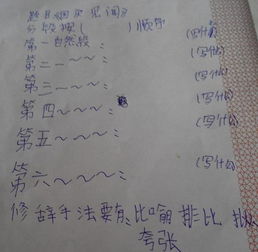 分段按( )顺序 (写什么)
第一自然段: (写什么)
第二~~~: (写什么)
第三~~~: (写什么)
第四~~~: (写什么)
第五~~~:
第六~~~: (写什么)
修辞手法要有:比喻 排比 拟
夸张